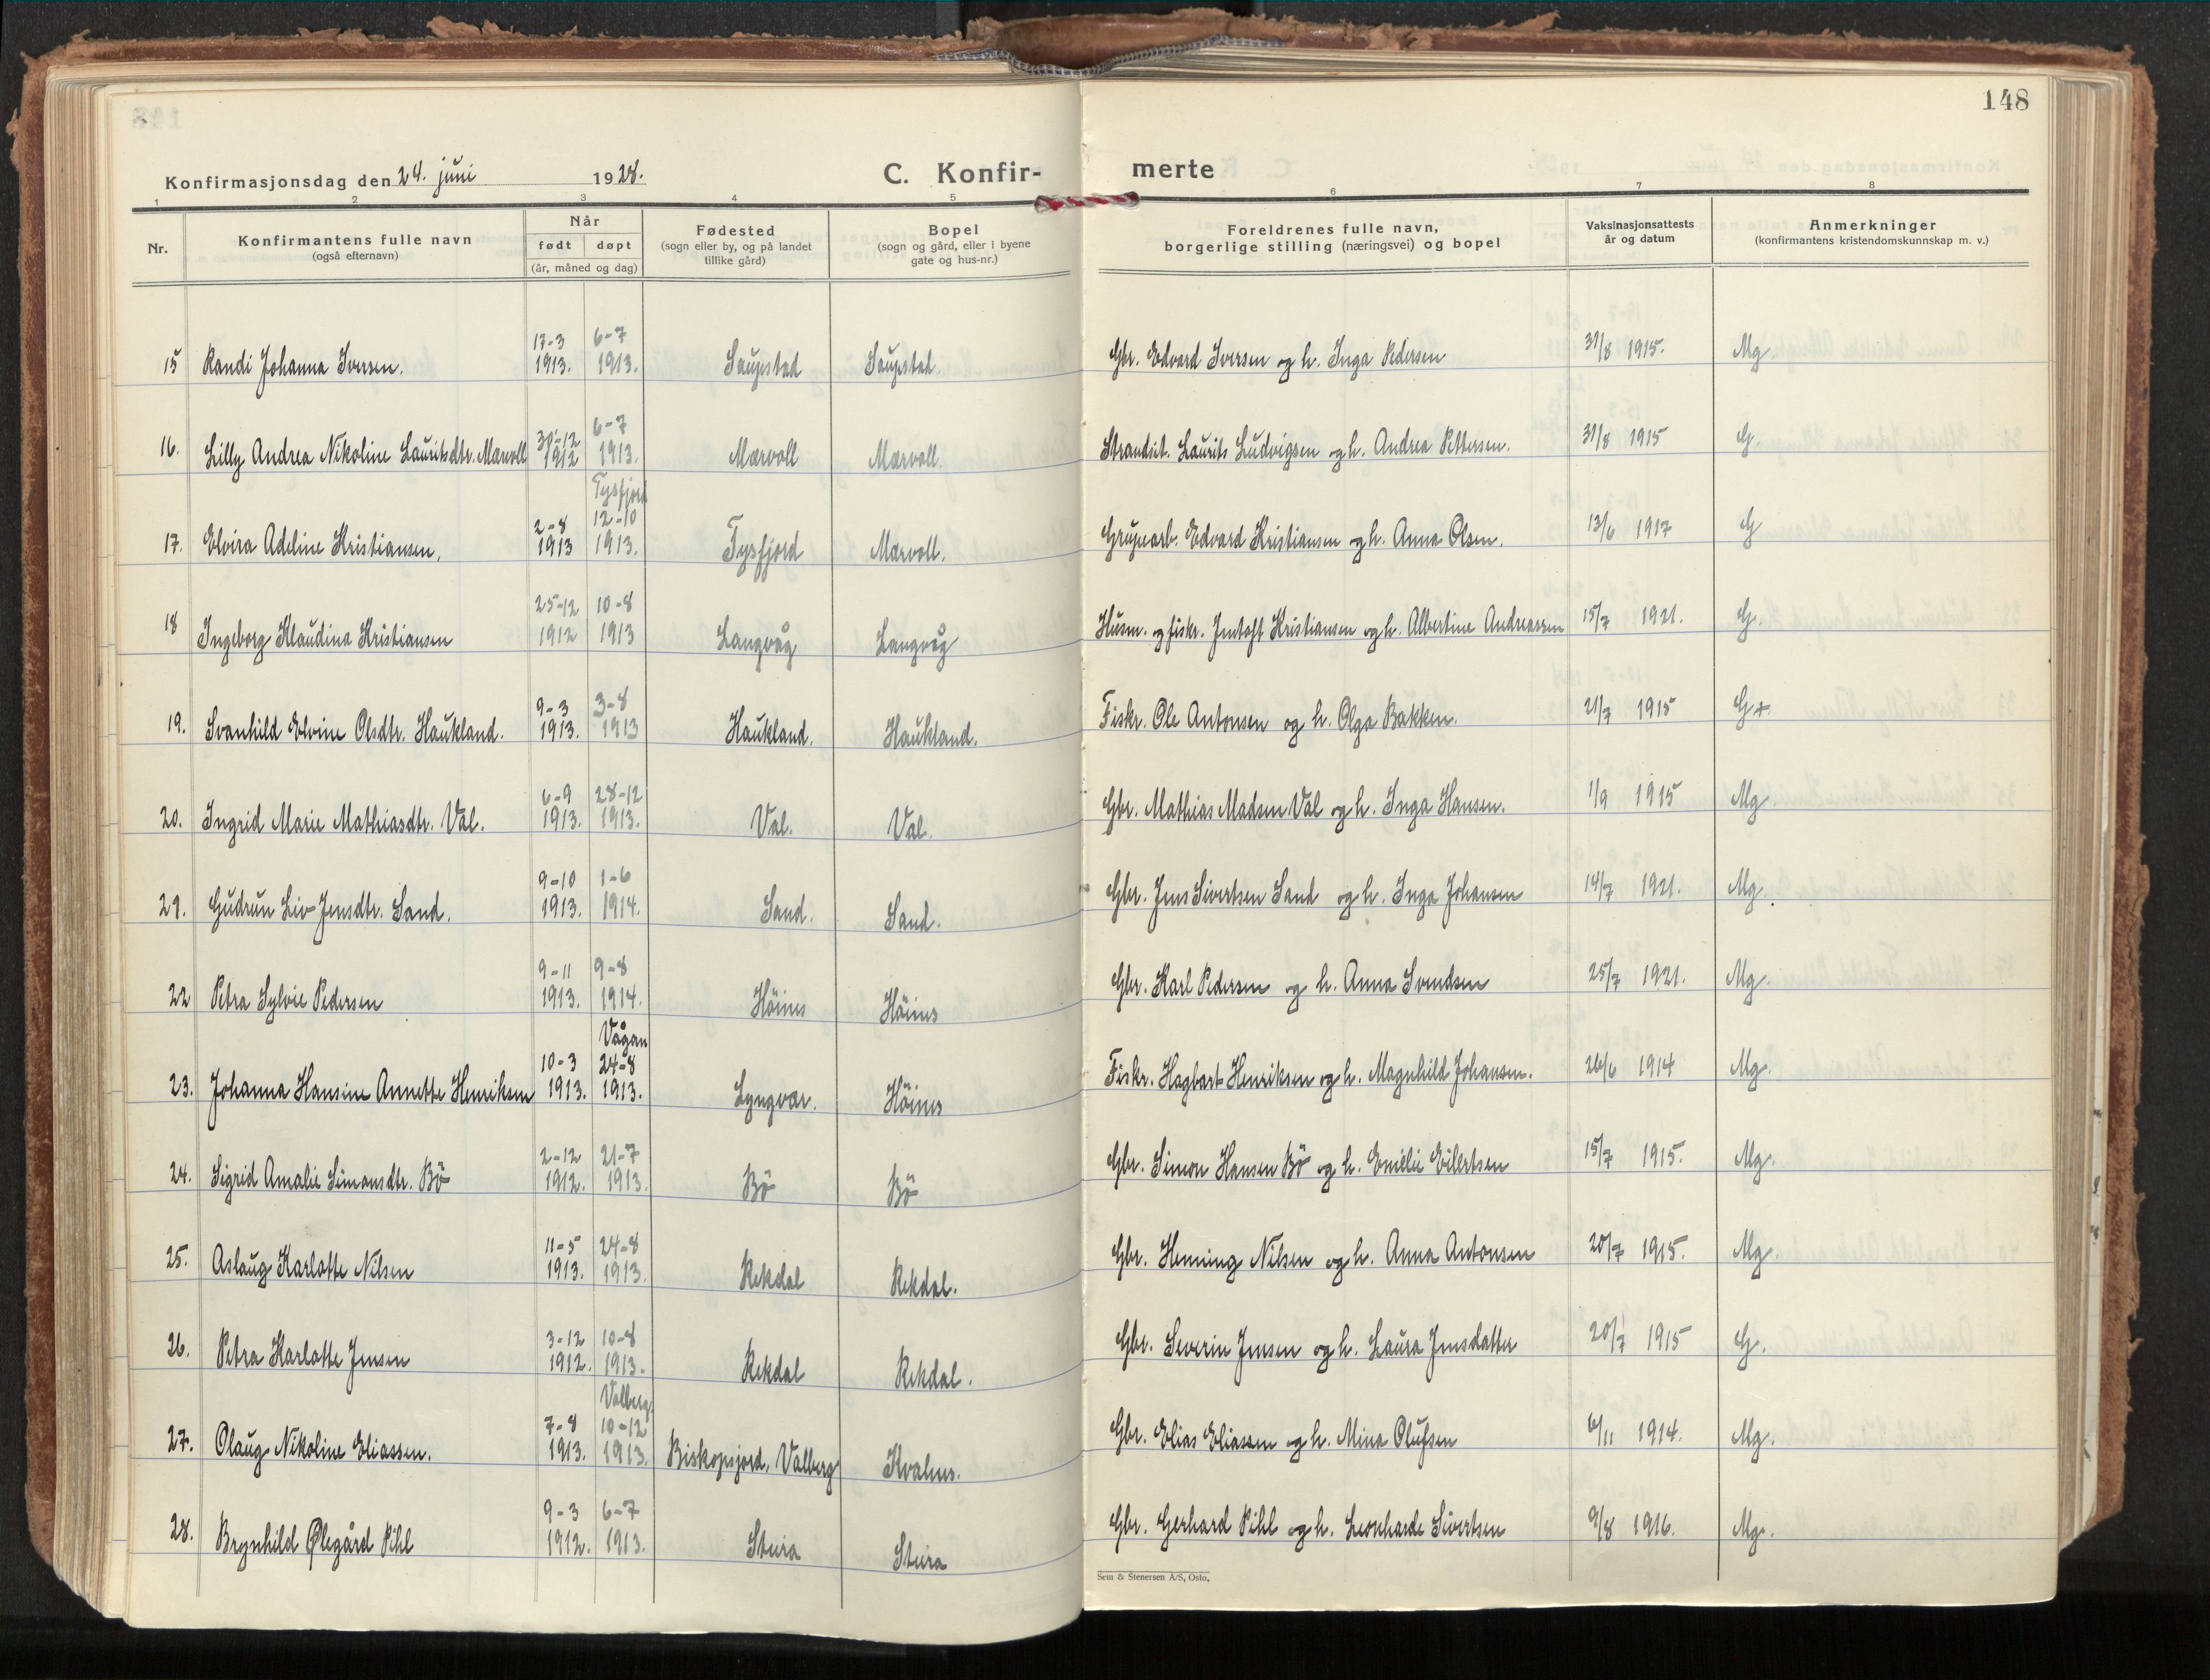 148
Konfirmasjonsdag den 24. juni 1928. C. Konfir- merte
1 2 3 4 5 6 7 8
Nr. Konfirmantens fulle navn (også efternavn) Når født døpt (år, måned og dag) Fødested (sogn eller by, og på landet tillike gård) Bopel (sogn og gård, eller i byene gate og hus-nr.) Foreldrenes fulle navn, borgerlige stilling (næringsvei) og bopel Vaksinasjonsattests år og datum Anmerkninger (konfirmantens kristendomskunnskap m. v.)
15 Randi Johanna Iversen. 17-3 1913. 6-7 1913. Saupstad Saupstad. Gbr. Edvard Iversen og h. Inga Pedersen 31/8 1915. Mg
16. Lilly Andrea Nikoline Lauritsdtr. Mærvoll 30-12 1912 6-7 1913. Mærvoll Mærvoll. Strandsit. Laurits Ludvigsen og h. Andrea Pettersen. 31/8 1915 G.
17. Elvira Adeline Kristiansen, 2-8 1913 Tysfjord 12-10 1913. Tysfjord Mærvoll. Grubearb. Edvard Kristiansen og h. Anna Olsen. 13/6 1917 G
18 Ingeborg Klaudina Kristiansen 25-12 1912 10-8 1913 Langvåg Langvåg Husm. og fiskr. Jentoft Kristiansen og h. Albertine Andreassen 15/7 1921. G.
19. Svanhild Elvine Olsdtr. Haukland. 9-3 1913. 3-8 1913 Haukland. Haukland. Fiskr. Ole Antonsen og h. Olga Bakken. 21/7 1915 G+.
20. Ingrid Marie Mathiasdtr. Val. 6-9 1913. 28-12 1913. Val. Val. Gbr. Mathias Madsen Val og h. Inga Hansen. 1/9 1915 Mg.
21. Gudrun Liv Jensdtr. Sand. 9-10 1913. 1-6 1914. Sand. Sand. Gbr. Jens Sivertsen Sand og h. Inga Johansen 14/7 1921. Mg.
22 Petra Sylvie Pedersen 9-11 1913. 9-8 1914. Höines Höines Gbr. Karl Pedersen og h. Anna Svendsen 25/7 1921. Mg.
23. Johanna Hansine Annette Henriksen 10-3 1913. Vågan 24-8 1913. Lyngvær. Höines Fiskr. Hagbart Henriksen og h. Magnhild Johansen. 26/6 1914 Mg.
24. Sigrid Amalie Simonsdtr. Bö 2-12 1912. 21-7 1913. Bö Bö Gbr. Simon Hansen Bö og h. Emelie Eilertsen 15/7 1915. Mg.
25. Aslaug Karlotte Nilsen 11-5 1913. 24-8 1913. Rekdal Rekdal. Gbr. Henning Nilsen og h. Anna Antonsen 20/7 1915. Mg.
26. Petra Karlotte Jensen 3-12 1912. 10-8 1913. Rekdal Rekdal. Gbr. Severin Jensen og h. Laura Jensdatter 20/7 1915 G.
27. Olaug Nikoline Eliassen. 7-8 1913. Valberg 10-12 1913. Biskopsjord, Valberg Kvalnes. Gbr. Elias Eliassen og h. Mina Olufsen 6/11 1914. Mg.
28. Brynhild Ølegård Pihl 9-3 1912. 6-7 1913. Steira Steira Gbr. Gerhard Pihl og h. Leonharde Sivertsen 9/8 1916. Mg.
Sem & Stenersen A/S, Oslo.